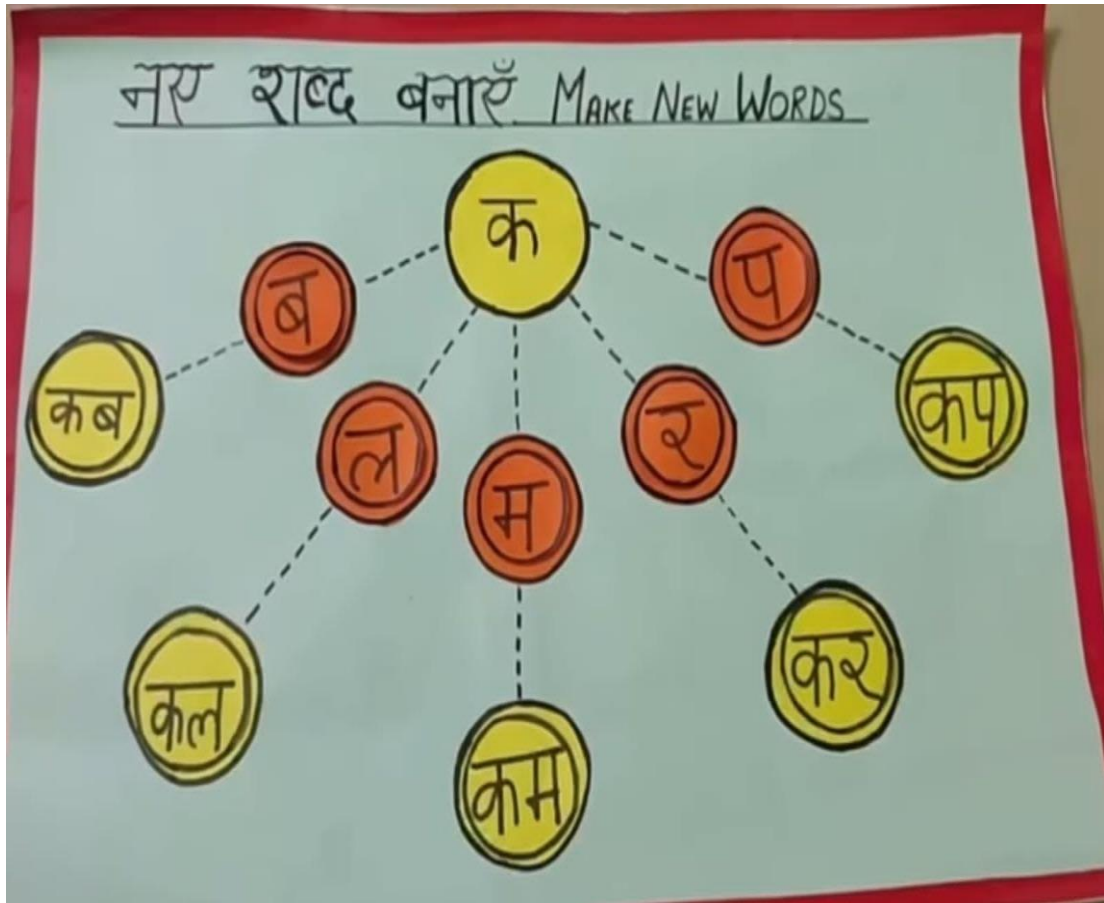 नए शब्द बनाएँ MAKE NEW WORDS
क
ब
प
कब
ल
म
र
कप
कल
कम
कर